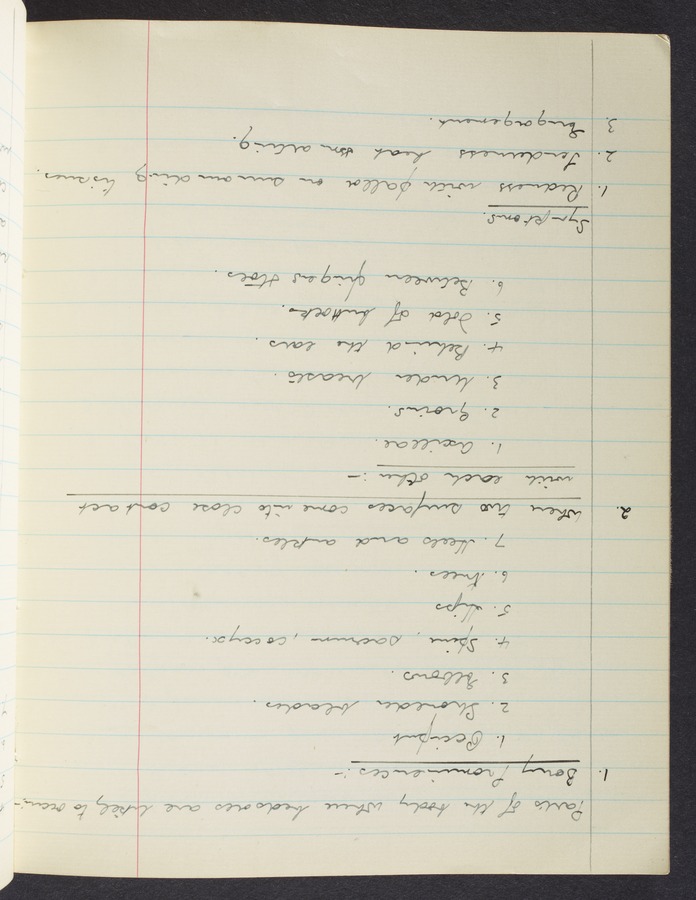 Parts of the body where bedsores are likely to occur:-
1. Bony Prominences:-
1. Occiput
2. Shoulder blades.
3. Elbows.
4. Spine, sacrum, coccyx.
5. Hips
6. Knees.
7. Heels and ankles.
2. When two surfaces come into close contact
with each other:-
1. Axillae.
2. Groins.
3. Under breasts.
4. Behind the ears.
5. Fold of buttocks.
6. Between fingers & toes.
Symptoms.
1. Redness with pallor on surrounding tissues.
2. Tenderness heat smarting.
3. Engagement.